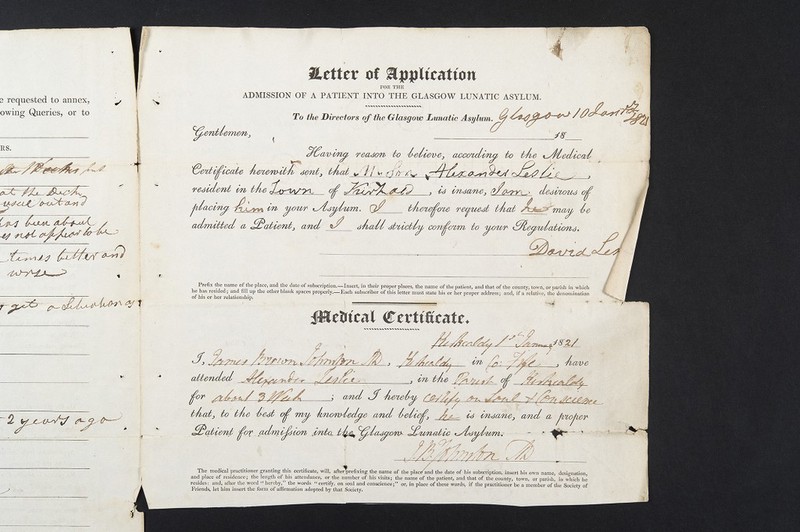 e requested to annex,
owing Queries, or to
RS.
at the Dock
out and
has been about
es not appear to be
times better and
worse
get a
2 years ago
Letter of Application
FOR THE
ADMISSION OF A PATIENT INTO THE GLASGOW LUNATIC ASYLUM.
To the Directors of the Glasgow Lunatic Asylum. Glasgow 10 Jany 1821
Gentlemen, 18
Having reason to believe, according to the Medical
Certificate herewith sent, that My Son Alexander Leslie,
resident in the Town of , is insane, I am desirous of
placing him in your Asylum. I therefore request that he may be
admitted a Patient, and I shall strictly conform to your Regulations.
David Les
Prefix the name of the place, and the date of subscription.—Insert, in their proper places, the name of the patient, and that of the county, town, or parish in which
he has resided; and fill up the other blank spaces properly.—Each subscriber of this letter must state his or her proper address; and, if a relative, the denomination
of his or her relationship.
Medical Certificate.
Kirkcaldy 1st January 1821
I, James Brown Johnston MD, Kirkcaldy in Co. Fife, have
attended Alexander Leslie, in the Parish of Kirkcaldy
for about 3 Week; and I hereby certify on Soul & Conscience
that, to the best of my knowledge and belief, he is insane, and a proper
Patient for admission into the Glasgow Lunatic Asylum.
JB Johnston MD
The medical practitioner granting this certificate, will, after prefixing the name of the place and the date of his subscription, insert his own name, designation,
and place of residence; the length of his attendance, or the number of his visits; the name of the patient, and that of the county, town, or parish, in which he
resides: and, after the word "hereby," the words "certify, on soul and conscience;" or, in place of these words, if the practitioner be a member of the Society of
Friends, let him insert the form of affirmation adopted by that Society.